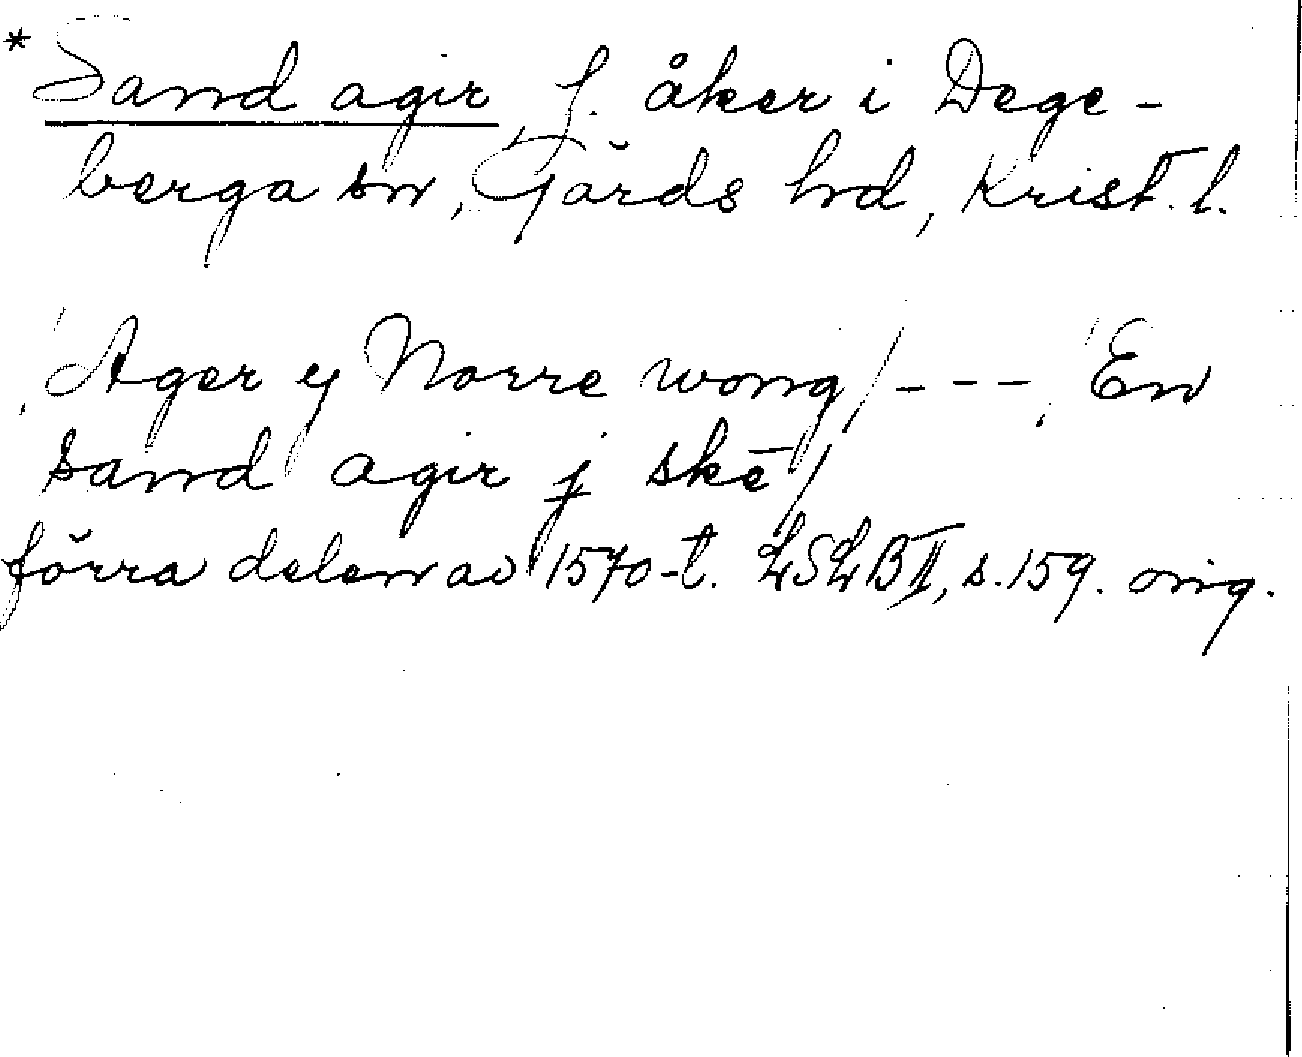 * Sand agir, f. åker i Dege-
berga sn, Gärds hd, Krist. l.
Ager y Norre wong/ - - - , En
sand agir j skē/
förra delen av 1570-t. LSLB II, s. 159. orig.